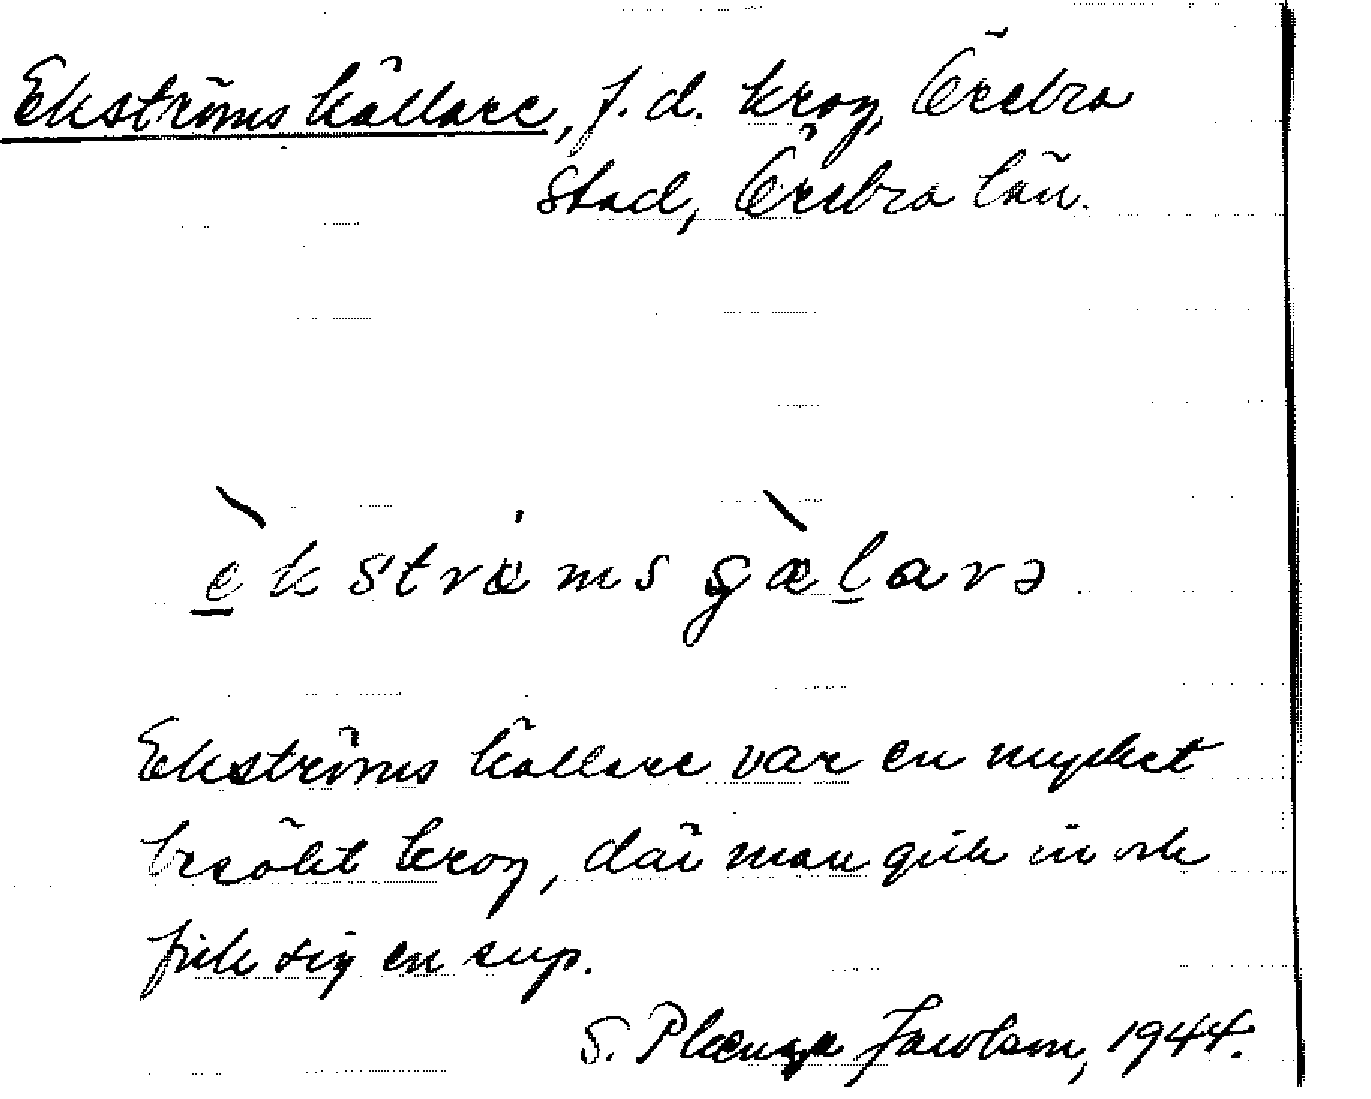 Ekströms källare, f.d. krog, Örebro
stad, Örebro län.
Ekströms källare var en mycket
besökt krog, där man gick in och
fick sig en sup.
S. Jacobson, 1944.